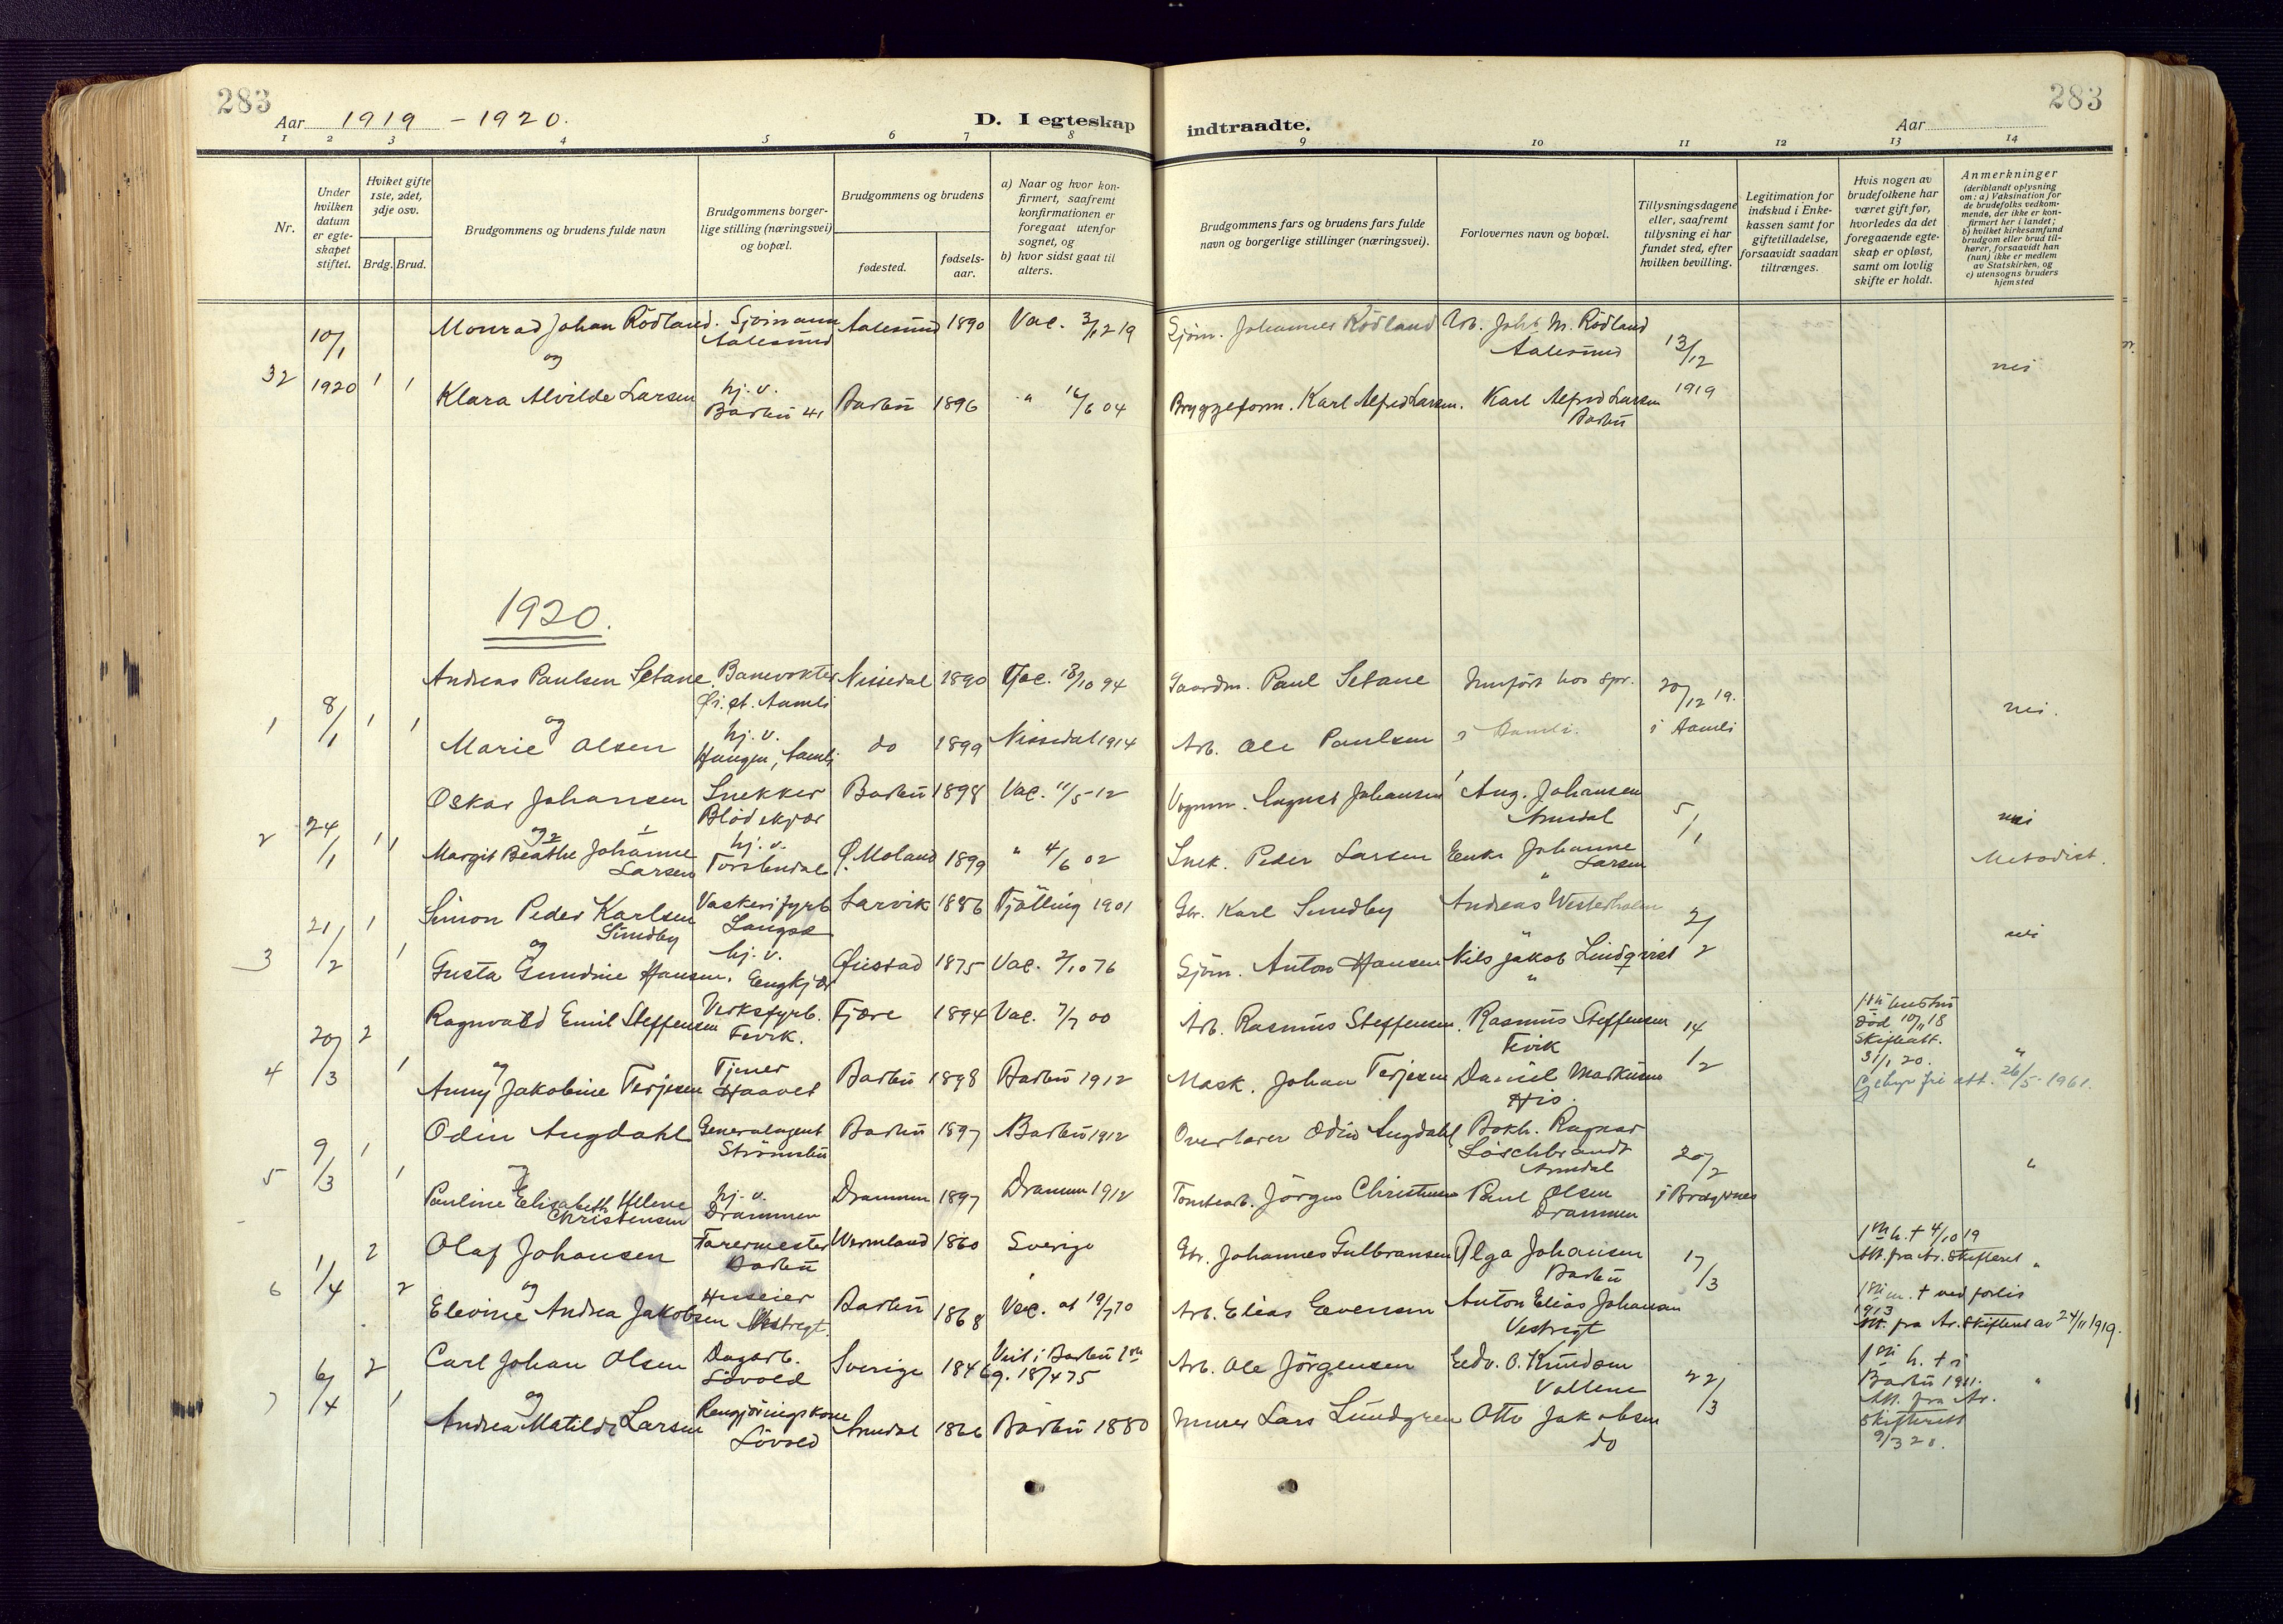 283
Aar 1919 - 1920.
D. I egteskap
indtraadte.
Aar
283
1 2 3 4 5 6 7 8 9 10 11 12 13 14
Nr.
Under hvilken datum er egteskapet stiftet.
Hviket gifte 1ste, 2det, 3dje osv.
Brdg. Brud.
Brudgommens og brudens fulde navn
Brudgommens borgerlige stilling (næringsvei) og bopæl.
Brudgommens og brudens
fødested.
fødselsaar.
a) Naar og hvor konfirmert, saafremt konfirmationen er foregaat utenfor sognet, og
b) hvor sidst gaat til alters.
Brudgommens fars og brudens fars fulde navn og borgerlige stillinger (næringsvei).
Forlovernes navn og bopæl.
Tillysningsdagene eller, saafremt tillysning ei har fundet sted, efter hvilken bevilling.
Legitimation for indskud i Enkekassen samt for giftetilladelse, forsaavidt saadan tiltrænges.
Hvis nogen av brudefolkene har været gift før, hvorledes da det foregaaende egteskap er opløst, samt om lovlig skifte er holdt.
Anmerkninger
(deriblandt oplysning om: a) Vaksination for de brudefolks vedkommende, der ikke er konfirmert her i landet; b) hvilket kirkesamfund brudgom eller brud tilhører, forsaavidt han (hun) ikke er medlem av Statskirken, og c) utensogns bruders hjemsted
32 10/1 1920 1 1
Monrad Johan Rödland. Sjömann Aalesund Aalesund 1890 Vac. 3/12 19 Sjöm. Johannes Rödland Arb. Johs M. Rödland Aalesund 13/12 1919 nei
og
Klara Alvilde Larsen hj. v. Barbu 41 Barbu 1896 " 12/6 04 Bryggeform. Karl Alfred Larsen. Karl Alfred Larsen Barbu
1920.
1 8/1 1 1
Andreas Paulsen Setane Banevokter Aamli Nissedal 1890 Vac. 13/10 94 Gaardm. Paul Setane Innført hos spr. 20/12 19. nei.
og
Marie Olsen hj. v. Haugen, Aamli do 1899 Nissedal 1914 Arb. Ole Paulsen i Aamli. i Aamli
2 24/1 1 1
Oskar Johansen Snekker Blödekjær Barbu 1898 Vac. 11/5 12 Vognm. August Johansen Aug. Johansen Arendal 5/1 nei
og
Margit Beathe Johanne Larsen hj. v. Torsbudal Ö. Moland 1899 " 4/6 02 Snek. Peder Larsen Enke Johanne Larsen " Metodist.
3 21/2 1 1
Simon Peder Karlsen Sundby Vaskerifyrb Langsæ Larvik 1886 Tjölling 1901 Gbr. Karl Sundby Andreas Westerholm " 2/2 nei
og
Gusta Gundine Hansen. hj. v. Engkjær Øiestad 1875 Vac. 2/10 76 Sjöm. Anton Hansen Nils Jakob Lindqvist "
4 20/3 2 1
Ragnvald Emil Steffensen Verksfyrb. Fevik. Fjære 1894 Vac. 7/7 00 Arb. Rasmus Steffensen. Rasmus Steffensen Fevik 14/2 1ste hustru död 10/11 18 Skifteatt. 31/1 20. "
og
Anny Jakobine Terjesen Tjener Haavet Barbu 1898 Barbu 1912 Mask. Johan Terjesen Daniel Markusen His. 26/5-1961.
5 9/3 1 1
Odin Augdahl Generalagent Strömsbu Barbu 1897 Barbu 1912 Overlærer Odin Augdahl Bokh. Ragnar Löschbrandt Arendal 20/2 "
og
Pauline Elisabeth Helene Christensen hj. v. Drammen Drammen 1897 Drammen 1912 Tomtearb. Jörgen Christensen Paul Olsen Drammen i Bragernes
6 1/4 2 2
Olaf Johansen Farermester Barbu Wermland 1860 Sverige Gbr. Johannes Gulbransen Olga Johansen Barbu 17/3 1ste h. + 4/10 19 Att. fra Ar. Skifteret "
og
Elevine Andrea Jakobsen Huseier Vestregt. Barbu 1868 Vac. at 19/7 70 Arb. Elias Evensen Anton Elias Johansen Vestregt 1ste m. + ved forlis 1913 Att. fra Ar. Skifteret av 24/11 1919.
7 6/4 2 1
Carl Johan Olsen Dagarb. Lövold Sverige 1846 Viet i Barbu 1ste g. 18/4 75 Arb. Ole Jörgensen Edv. O. Knudsen Vollene 22/3 1ste h. + i Barbu 1911. Att. fra Ar. Skifterett 9/3 20. "
og
Andrea Matilde Larsen Rengjöringskone Lövold Arendal 1866 Barbu 1880 Murer Lars Lundgren Otto Jakobsen do